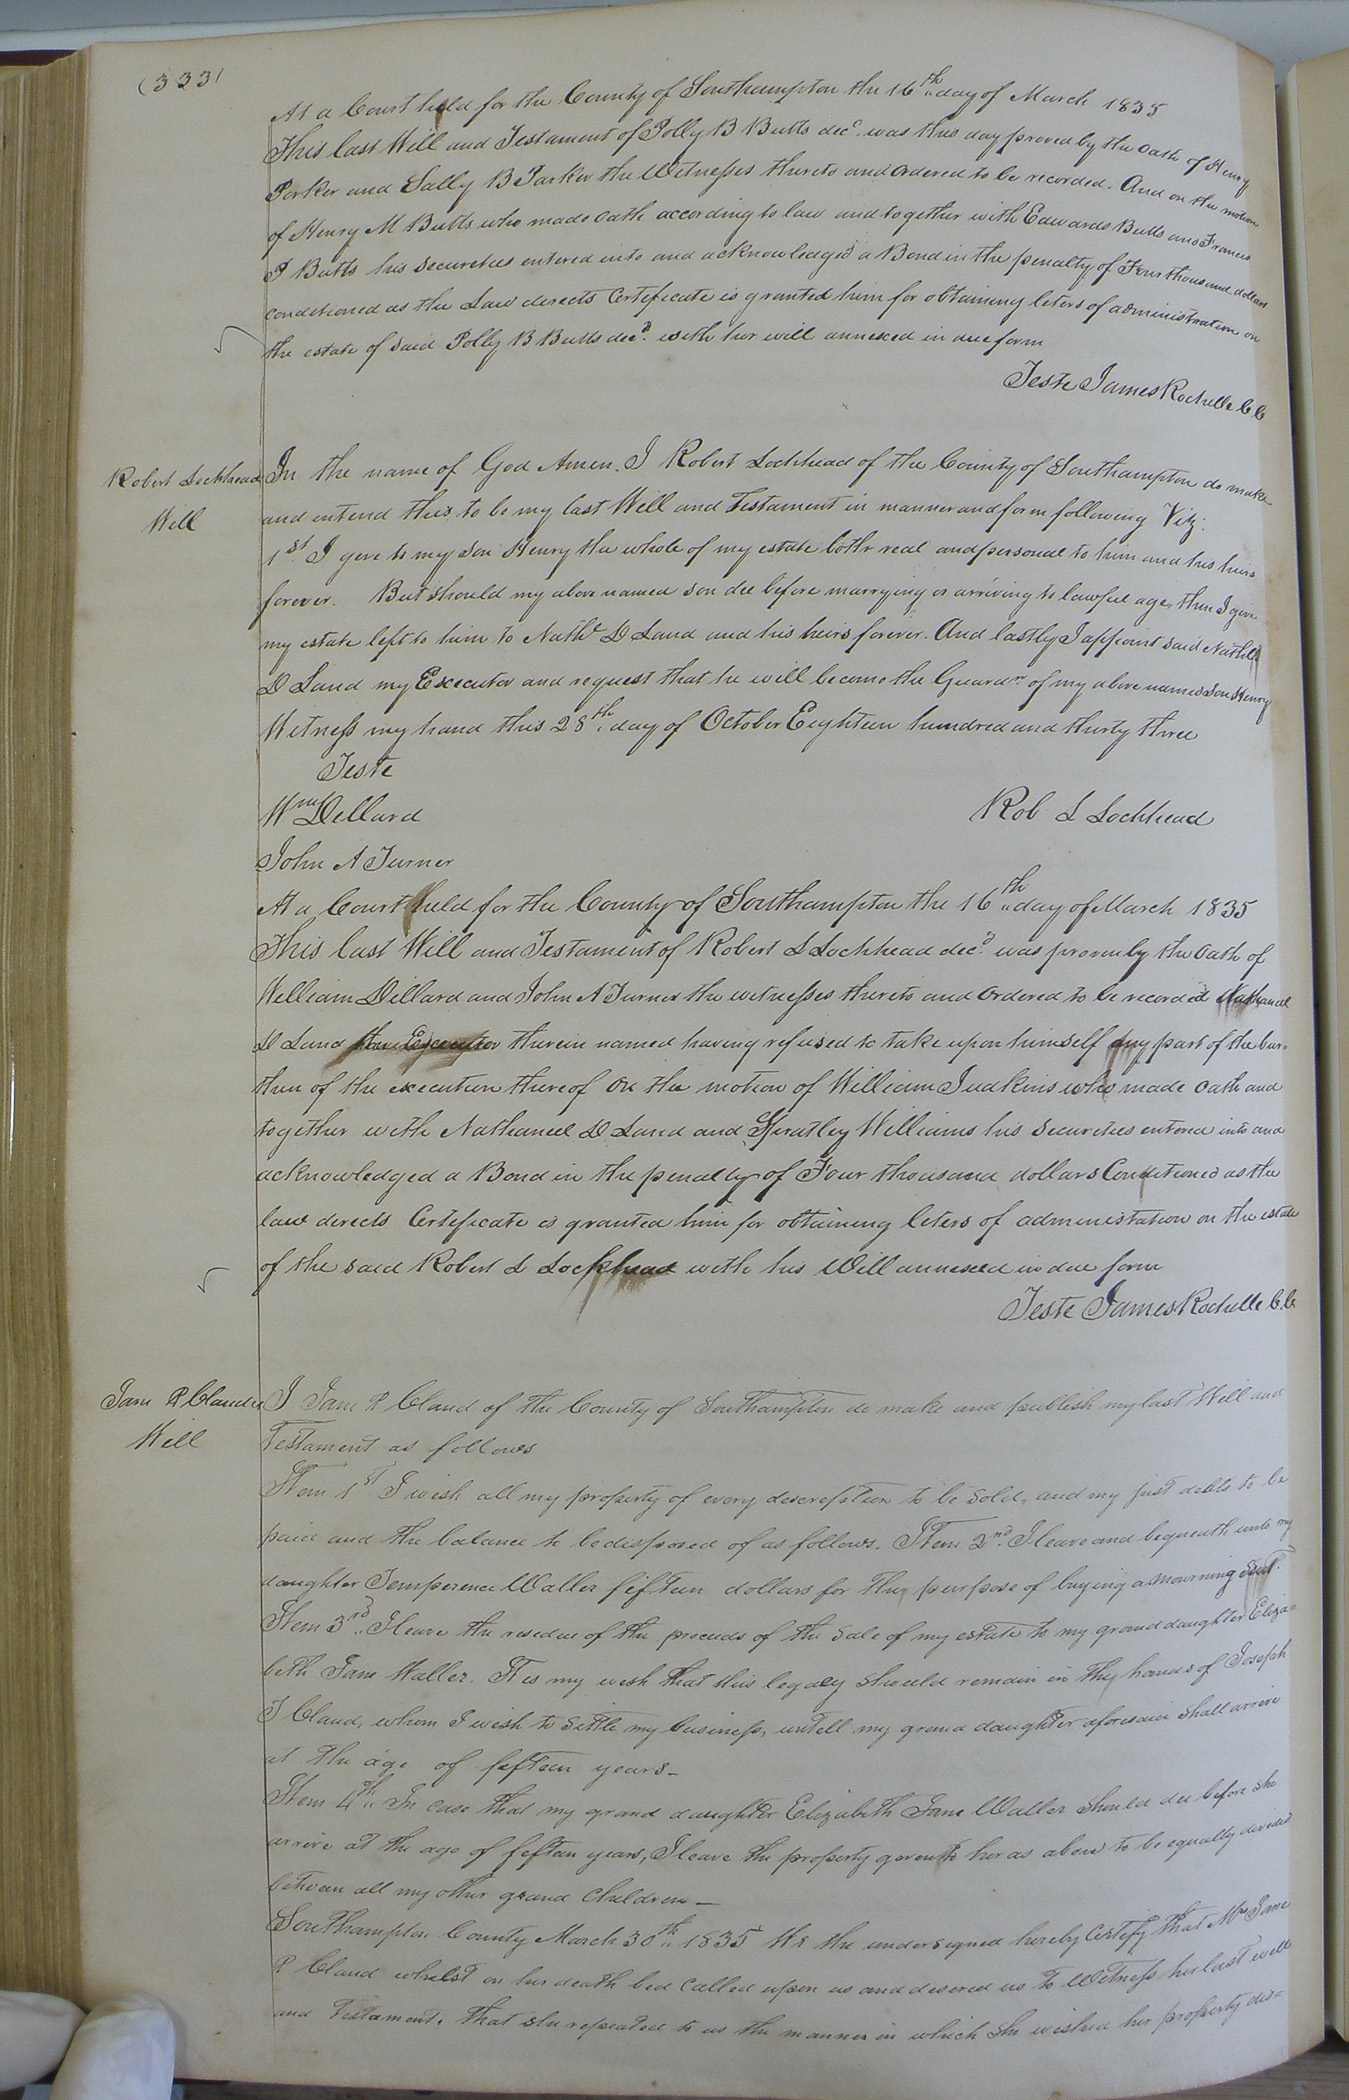 (333)
At a Court held for the County of Southampton the 16th day of March 1835
This last Will and Testament of Polly B Butts decd. was this day proved by the oath of Henry
Parker and Sally B Parker the Witnesses thereto and ordered to be recorded. And on the motion
of Henry M Butts who made oath according to law and together with Edwards Butts and Francis
P Butts his securities entered into and acknowledged a Bond in the penalty of Four thousand dollars
conditioned as the Law directs Certificate is granted him for obtaining leters of administration on
the estate of said Polly B Butts decd. with her will annexed in due form
Teste James Rochelle C.C
Robert Lockhead
Will
In the name of God Amen. I Robert Lochhead of the County of Southampton do make
and intend this to be my last Will and Testament in manner and form following Viz:
1st I give to my son Henry the whole of my estate both real and personal to him and his heirs
forever. But should my above named son die before marrying or arriving to lawful age, then I give
my estate left to him to Nathl D Land and his heirs forever. And lastly I appoint said Nathll
D Land my Executor and request that he will become the Guardn. of my above named son Henry
Witness my hand this 28th day of October Eighteen hundred and thirty three
Teste
Wm Dillard
Rob L Lochhead
John A Turner
At a Court held for the County of Southampton the 16th day of March 1835
This last Will and Testament of Robert L Lochhead decd. was proven by the oath of
William Dillard and John A Turner the witnesses thereto and ordered to be recorded Nathaniel
D Land the Executor therein named having refused to take upon himself any part of the bur=
then of the execution thereof On the motion of William Judkins who made oath and
together with Nathaniel D Land and Spratley Williams his securities entered into and
acknowledged a Bond in the penalty of Four thousand dollars Conditioned as the
law directs Certificate is granted him for obtaining leters of administation on the estate
of the said Robert L Lockhead with his Will annexed in due form
Teste James Rochelle C.C.
Jane P Claud's
Will
I Jane P Claud of the County of Southampton do make and publish my last Will and
Testament as follows
Item 1st I wish all my property of every description to be sold, and my just debts to be
paid and the balance to be disposed of as follows. Item 2nd. I leave and bequeath unto my
daughter Temperence Waller fifteen dollars for the purpose of buying a mourning suit.
Item 3rd. I leave the residue of the proceeds of the sale of my estate to my grand daughter Eliza=
beth Jane Waller. It is my wish that this legacy should remain in the hands of Joseph
J Claud, whom I wish to settle my business, untill my grand daughter aforesaid shall arrive
at the age of fifteen years_
Item 4th. In case that my grand daughter Elizabeth Jane Waller should die before she
arrive at the age of fifteen years, I leave the property given to her as above to be equally divided
between all my other grand children_
Southampton County March 30th 1835 We the undersigned hereby Certify that Mrs Jane
P Claud whilst on her death bed called upon us and desired us to Witness her last will
and Testament. that she repeated to us the manner in which she wished her property dis=